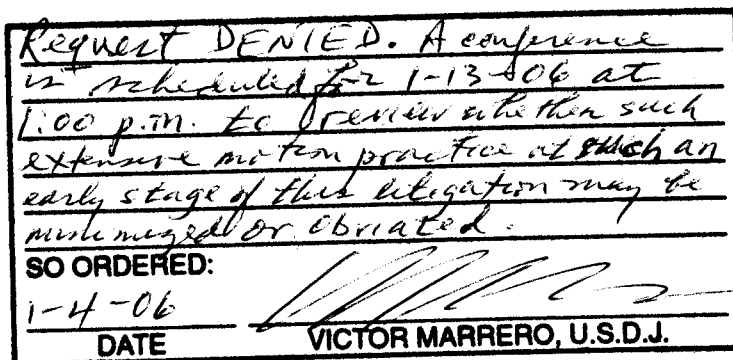 Request DENIED. A conference
is scheduled for 1-13-06 at
1:00 p.m. to review whether such
extensive motion practice at such an
early stage of this litigation may be
minimized or obviated.
SO ORDERED:
1-4-06
DATE VICTOR MARRERO, U.S.D.J.